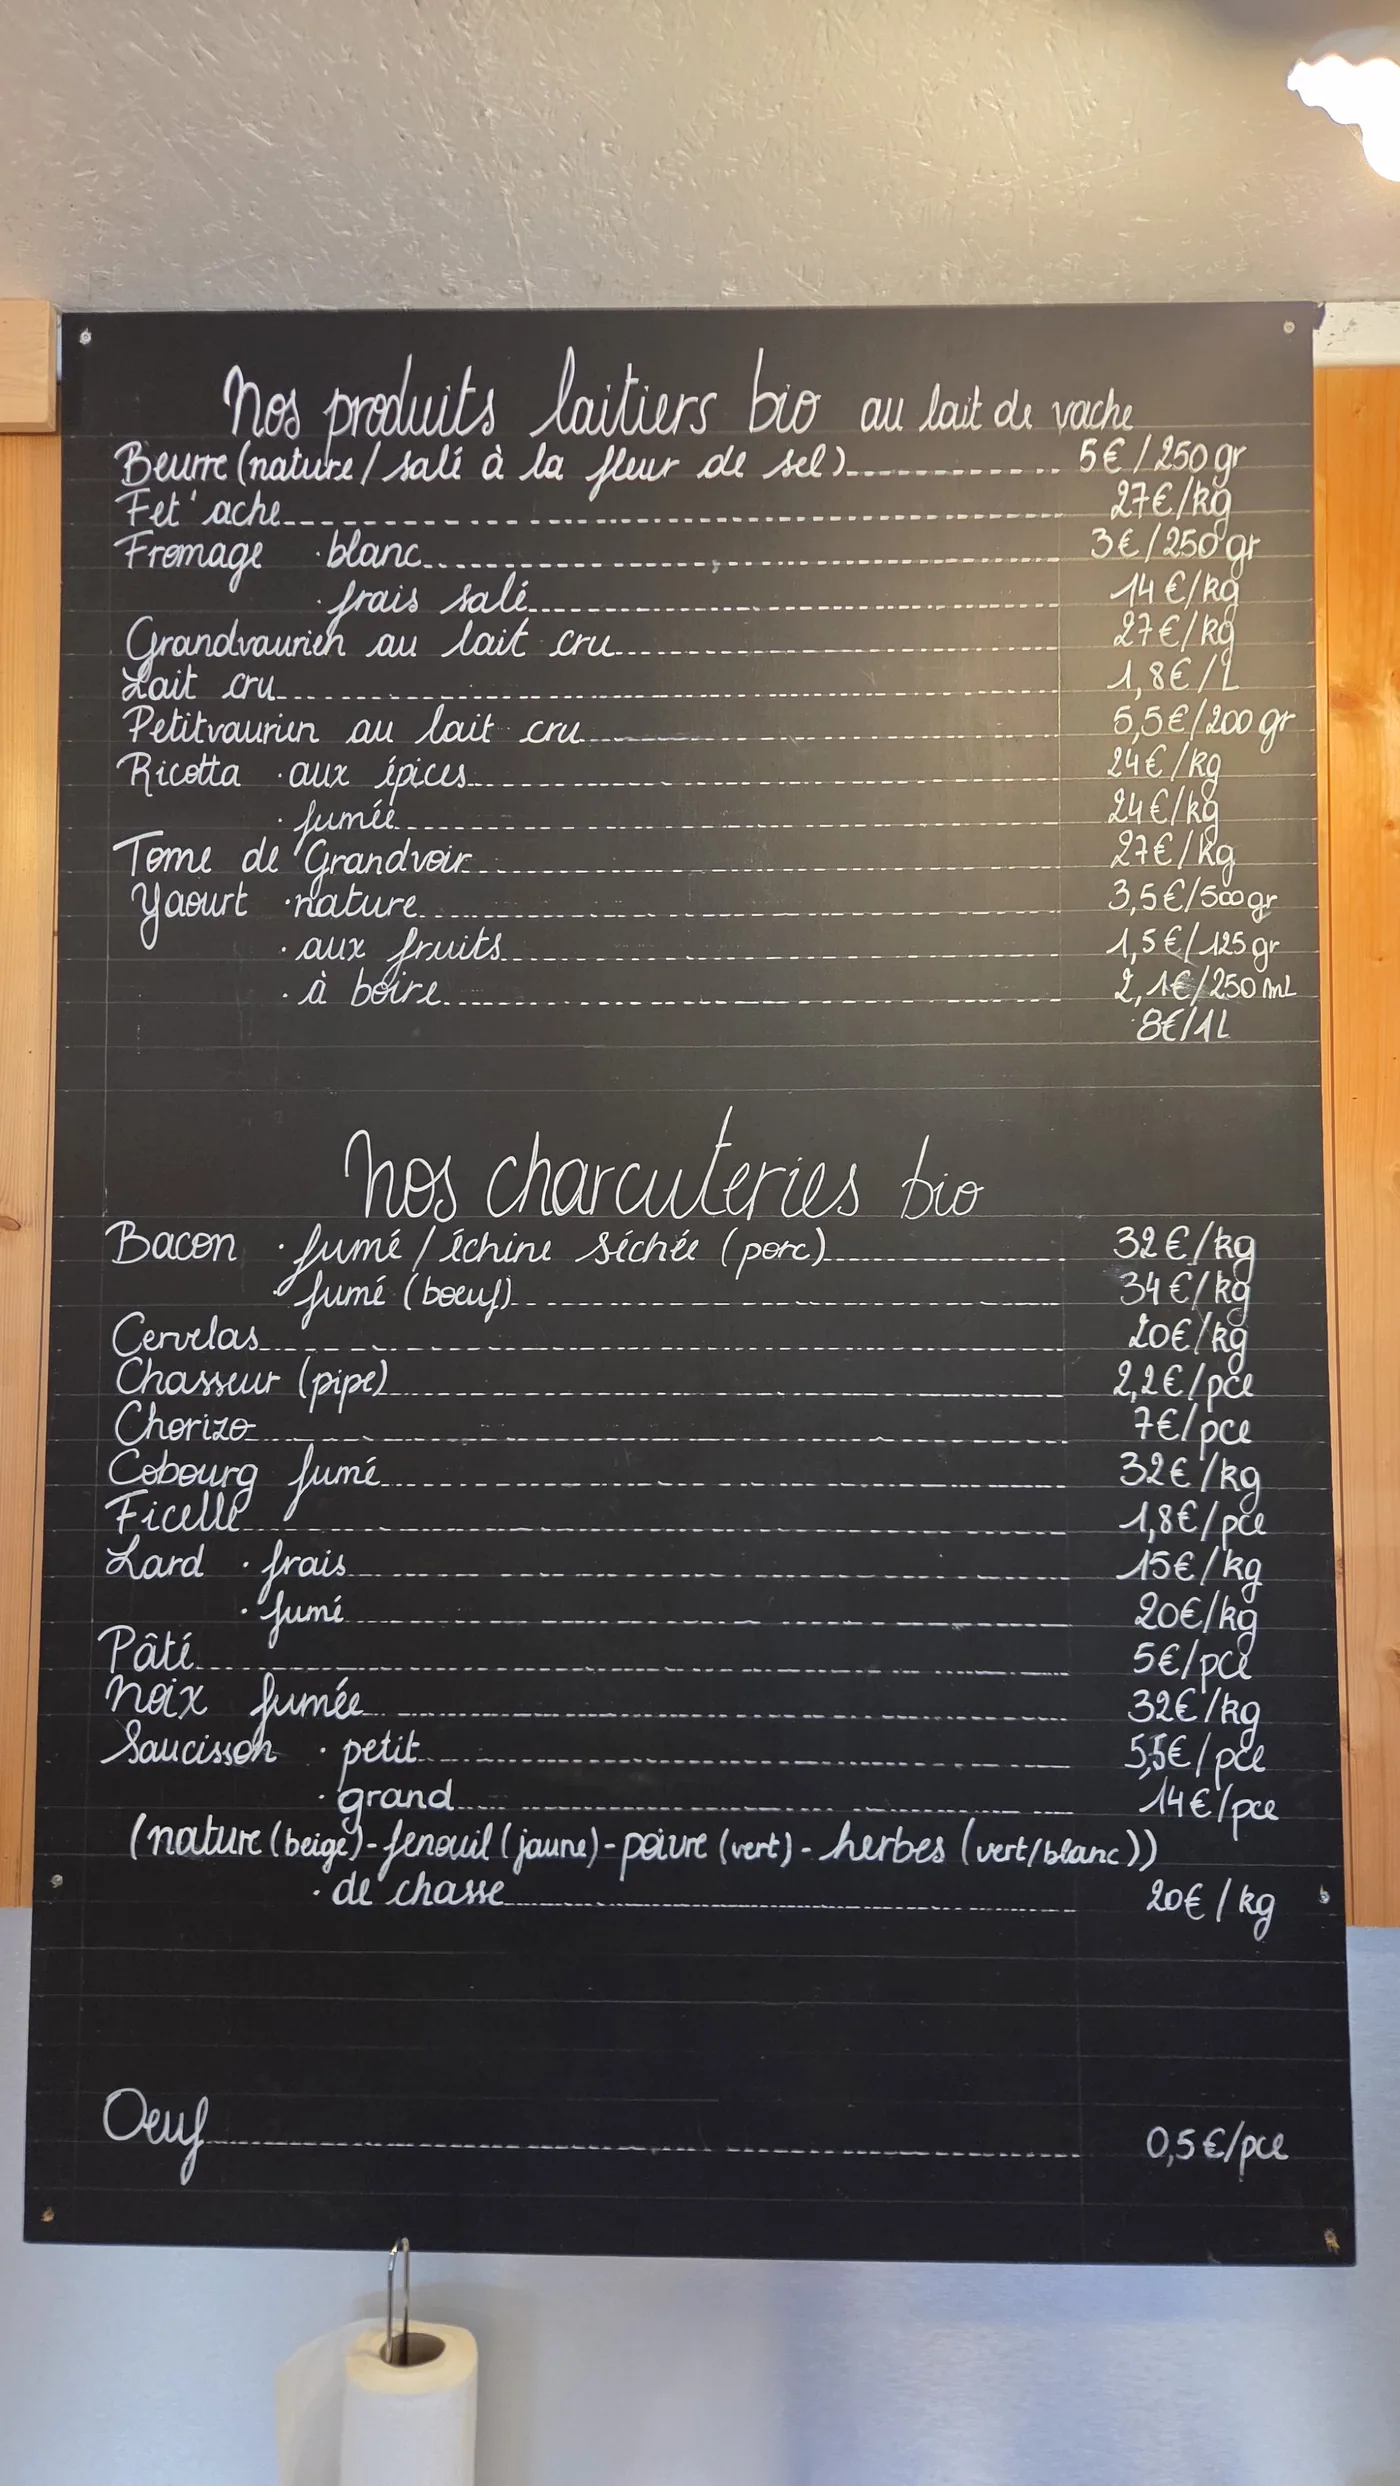 Nos produits laitiers bio au lait de vache
Beurre (nature / salé à la fleur de sel) 5€/250 gr
Fet'ache 27€/kg
Fromage · blanc 3€/250 gr
· frais salé 14€/kg
Grandvaurien au lait cru 27€/kg
Lait cru 1,8€/L
Petitvaurien au lait cru 5,5€/200 gr
Ricotta · aux épices 24€/kg
· fumée 24€/kg
Tome de Grandvoir 27€/kg
Yaourt · nature 3,5€/500 gr
· aux fruits 1,5€/125 gr
· à boire 2,1€/250 mL
8€/1L
Nos charcuteries bio
Bacon · fumé / échine séchée (porc) 32€/kg
· fumé (boeuf) 34€/kg
Cervelas 20€/kg
Chasseur (pipe) 2,2€/pce
Chorizo 7€/pce
Cobourg fumé 32€/kg
Ficelle 1,8€/pce
Lard · frais 15€/kg
· fumé 20€/kg
Pâté 5€/pce
Noix fumée 32€/kg
Saucisson · petit 5,5€/pce
· grand 14€/pce
(nature (beige) - fenouil (jaune) - poivre (vert) - herbes (vert/blanc))
· de chasse 20€/kg
Oeuf 0,5€/pce